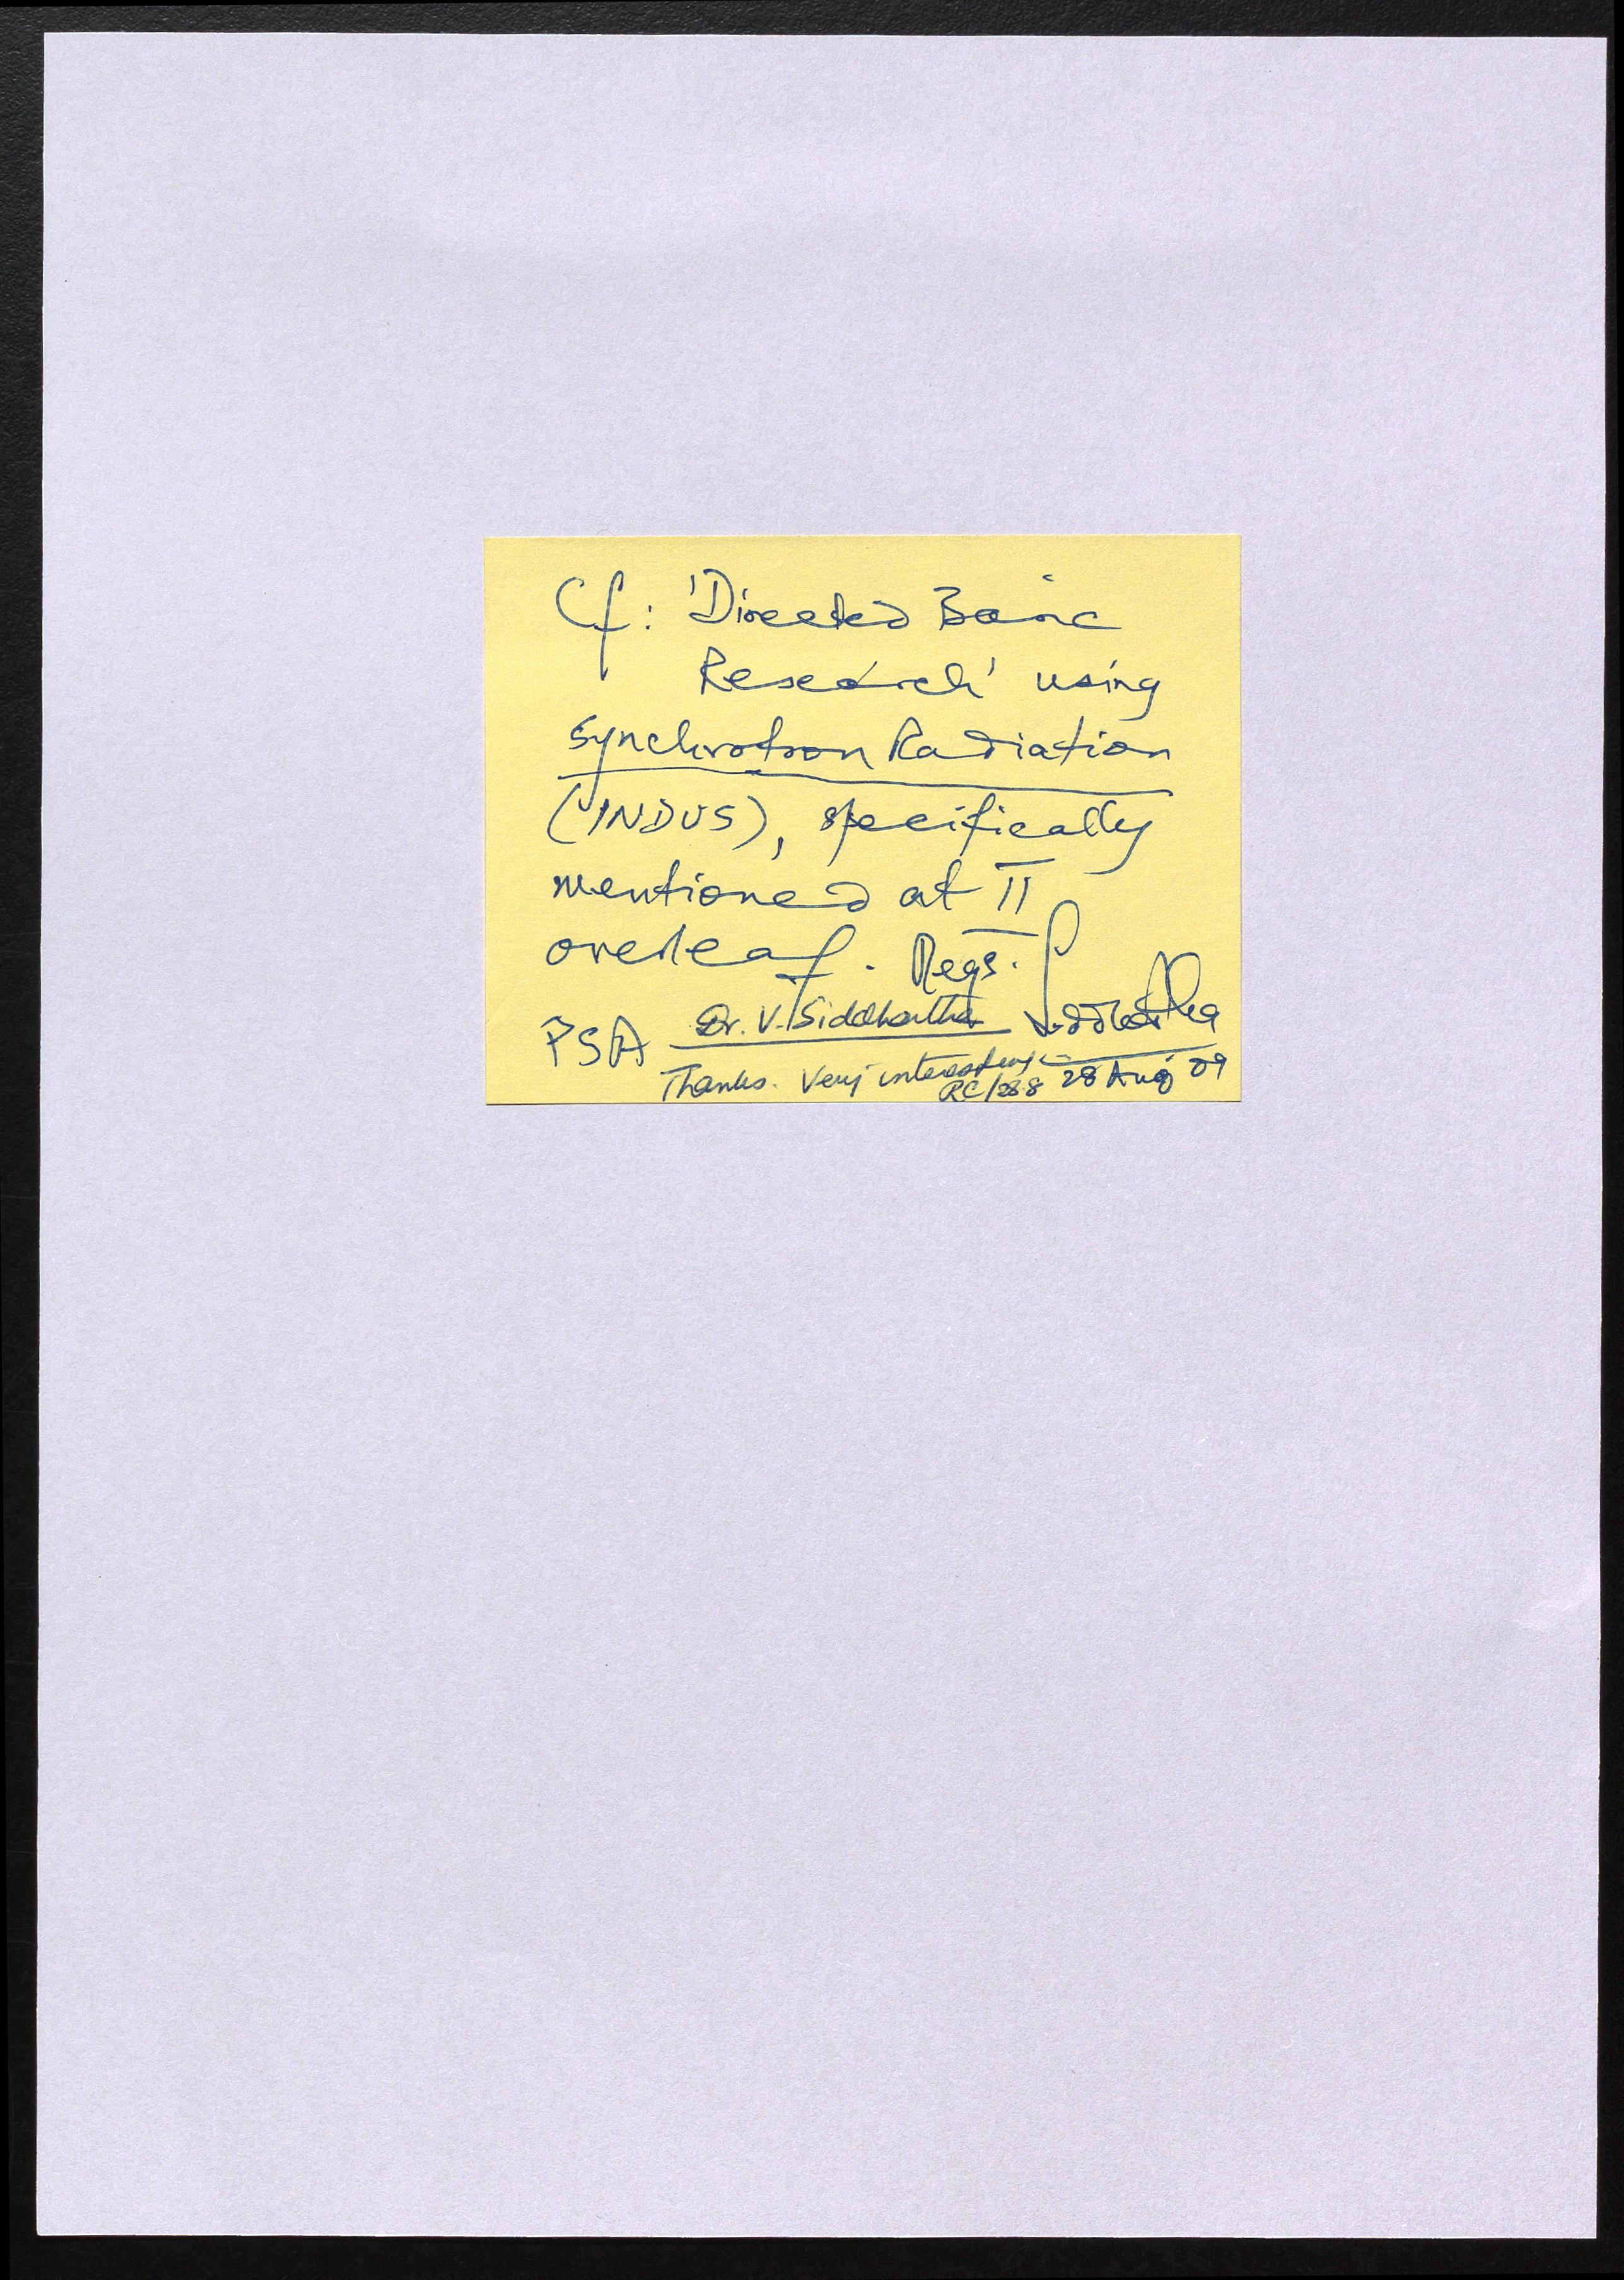 Cf: 'Directed Basic
Research' using
Synchrotron Radiation
(INDUS), specifically
mentioned at II
overleaf. Regs. Siddhartha
PSA Dr. V. Siddhartha
Thanks. Very interesting 28 Aug 09
RC/288